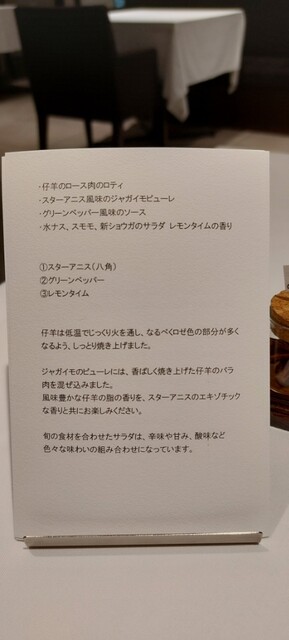 ・仔羊のロース肉のロティ
・スターアニス風味のジャガイモピューレ
・グリーンペッパー風味のソース
・水ナス、スモモ、新ショウガのサラダ レモンタイムの香り
①スターアニス(八角)
②グリーンペッパー
③レモンタイム
仔羊は低温でじっくり火を通し、なるべくロゼ色の部分が多く
なるよう、しっとり焼き上げました。
ジャガイモのピューレには、香ばしく焼き上げた仔羊のバラ
肉を混ぜ込みました。
風味豊かな仔羊の脂の香りを、スターアニスのエキゾチック
な香りと共にお楽しみください。
旬の食材を合わせたサラダは、辛味や甘み、酸味など
色々な味わいの組み合わせになっています。